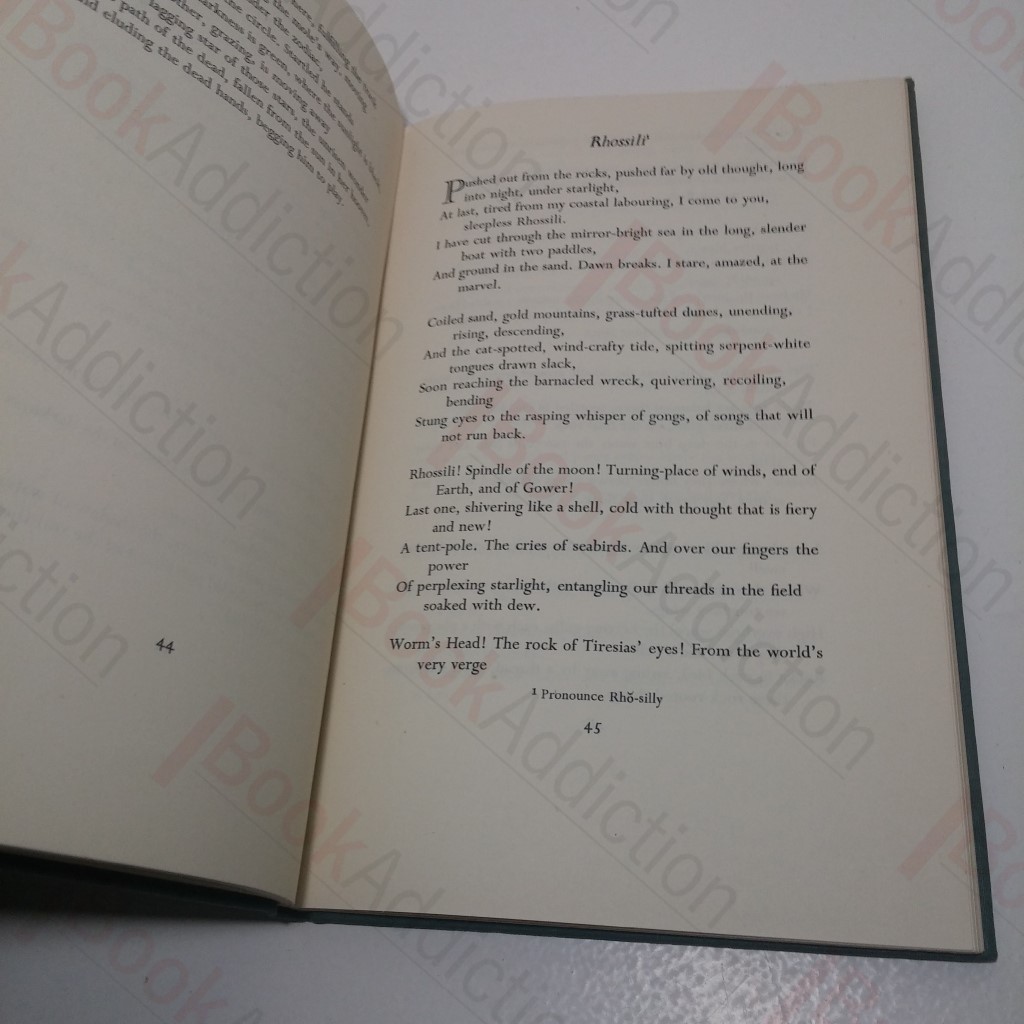 here, fulfilling the track
the mole's way, moving
der the zodiac,
the circle. Startled he stands
arkness is green, where the sunlight is blind.
other, grazing, is moving away
lagging star of those stars, the unseen
path of the dead, fallen from the sun in her hooves,
nd eluding the dead hands, begging him to play.
44
Rhossili¹
Pushed out from the rocks, pushed far by old thought, long
into night, under starlight,
At last, tired from my coastal labouring, I come to you,
sleepless Rhossili.
I have cut through the mirror-bright sea in the long, slender
boat with two paddles,
And ground in the sand. Dawn breaks. I stare, amazed, at the
marvel.
Coiled sand, gold mountains, grass-tufted dunes, unending,
rising, descending,
And the cat-spotted, wind-crafty tide, spitting serpent-white
tongues drawn slack,
Soon reaching the barnacled wreck, quivering, recoiling,
bending
Stung eyes to the rasping whisper of gongs, of songs that will
not run back.
Rhossili! Spindle of the moon! Turning-place of winds, end of
Earth, and of Gower!
Last one, shivering like a shell, cold with thought that is fiery
and new!
A tent-pole. The cries of seabirds. And over our fingers the
power
Of perplexing starlight, entangling our threads in the field
soaked with dew.
Worm's Head! The rock of Tiresias' eyes! From the world's
very verge
¹ Pronounce Rhŏ-silly
45
BookAddiction